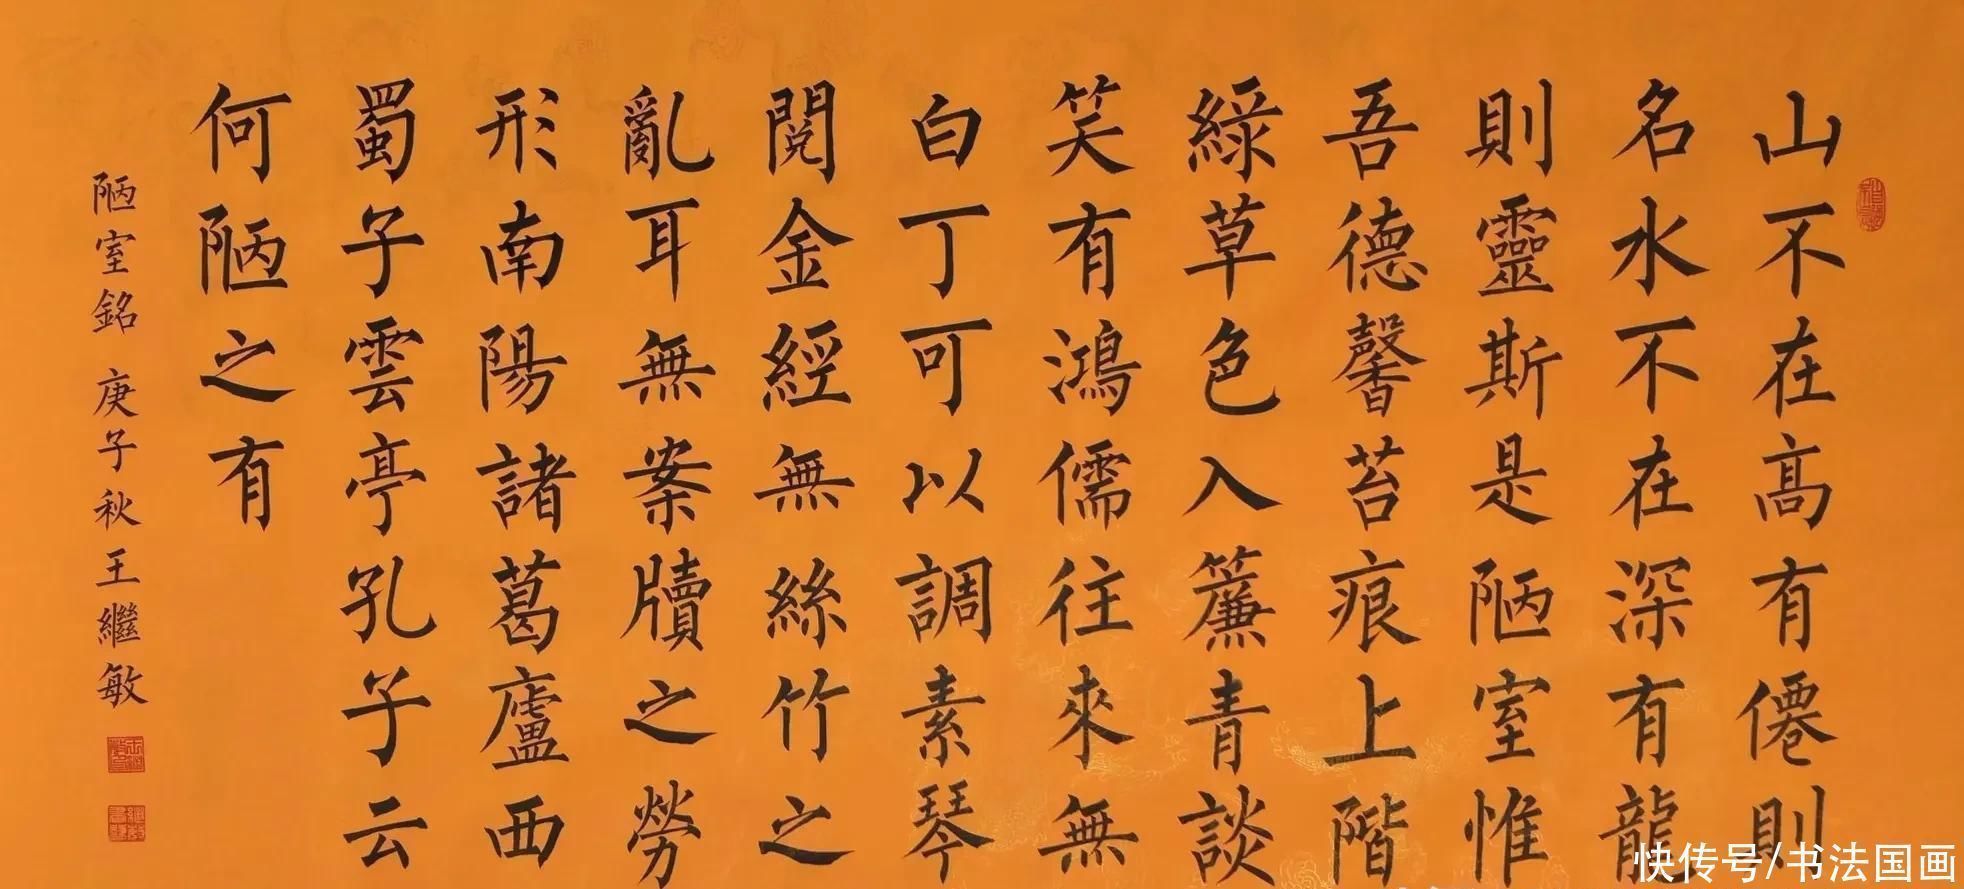 山不在髙有僊則
名水不在深有龍
則靈斯是陋室惟
吾德馨苔痕上階
綠草色入簾青談
笑有鴻儒往來無
白丁可以調素琴
閱金經無絲竹之
亂耳無案牘之勞
形南陽諸葛廬西
蜀子雲亭孔子云
何陋之有
陋室銘 庚子秋王繼敏
快传号/书法国画